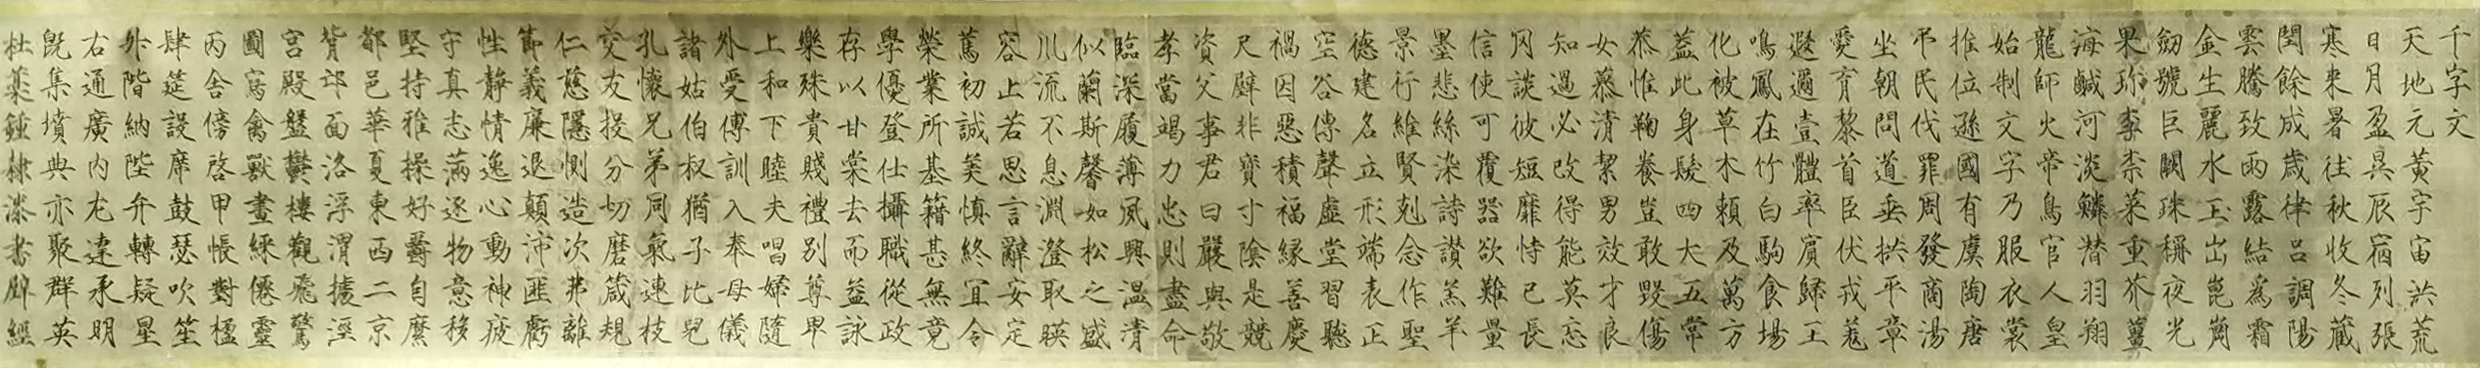 千字文
天地元黄宇宙洪荒
日月盈昃辰宿列張
寒来暑往秋收冬蔵
閏餘成歲律吕調陽
雲騰致雨露結為霜
金生麗水玉出崑崗
劒號巨闕珠稱夜光
果珎李柰菜重芥薑
海鹹河淡鱗潛羽翔
龍師火帝鳥官人皇
始制文字乃服衣裳
推位遜國有虞陶唐
弔民伐罪周發商湯
坐朝問道垂拱平章
愛育黎首臣伏戎羌
遐邇壹體率賓歸王
鳴鳳在竹白駒食場
化被草木賴及萬方
蓋此身髮四大五常
恭惟鞠養豈敢毀傷
女慕清潔男效才良
知過必改得能莫忘
罔談彼短靡恃己長
信使可覆器欲難量
墨悲絲染詩讃羔羊
景行維賢剋念作聖
德建名立形端表正
空谷傳聲虛堂習聽
禍因惡積福緣善慶
尺璧非寶寸陰是競
資父事君曰嚴與敬
孝當竭力忠則盡命
臨深履薄夙興温清
似蘭斯馨如松之盛
川流不息淵澄取暎
容止若思言辭安定
篤初誠美慎終宜令
榮業所基籍甚無竟
學優登仕攝職從政
存以甘棠去而益詠
樂殊貴賤禮別尊卑
上和下睦夫唱婦隨
外受傅訓入奉母儀
諸姑伯叔猶子比兒
孔懷兄弟同氣連枝
交友投分切磨箴規
仁慈隱惻造次弗離
節義廉退顛沛匪虧
性静情逸心動神疲
守真志滿逐物意移
堅持雅操好爵自縻
都邑華夏東西二京
背邙面洛浮渭據涇
宮殿盤鬱樓觀飛驚
圖寫禽獸畫綵僊靈
丙舍傍啓甲帳對楹
肆筵設席鼓瑟吹笙
升階納陛弁轉疑星
右通廣內左達承明
既集墳典亦聚群英
杜稾鍾隸漆書壁經